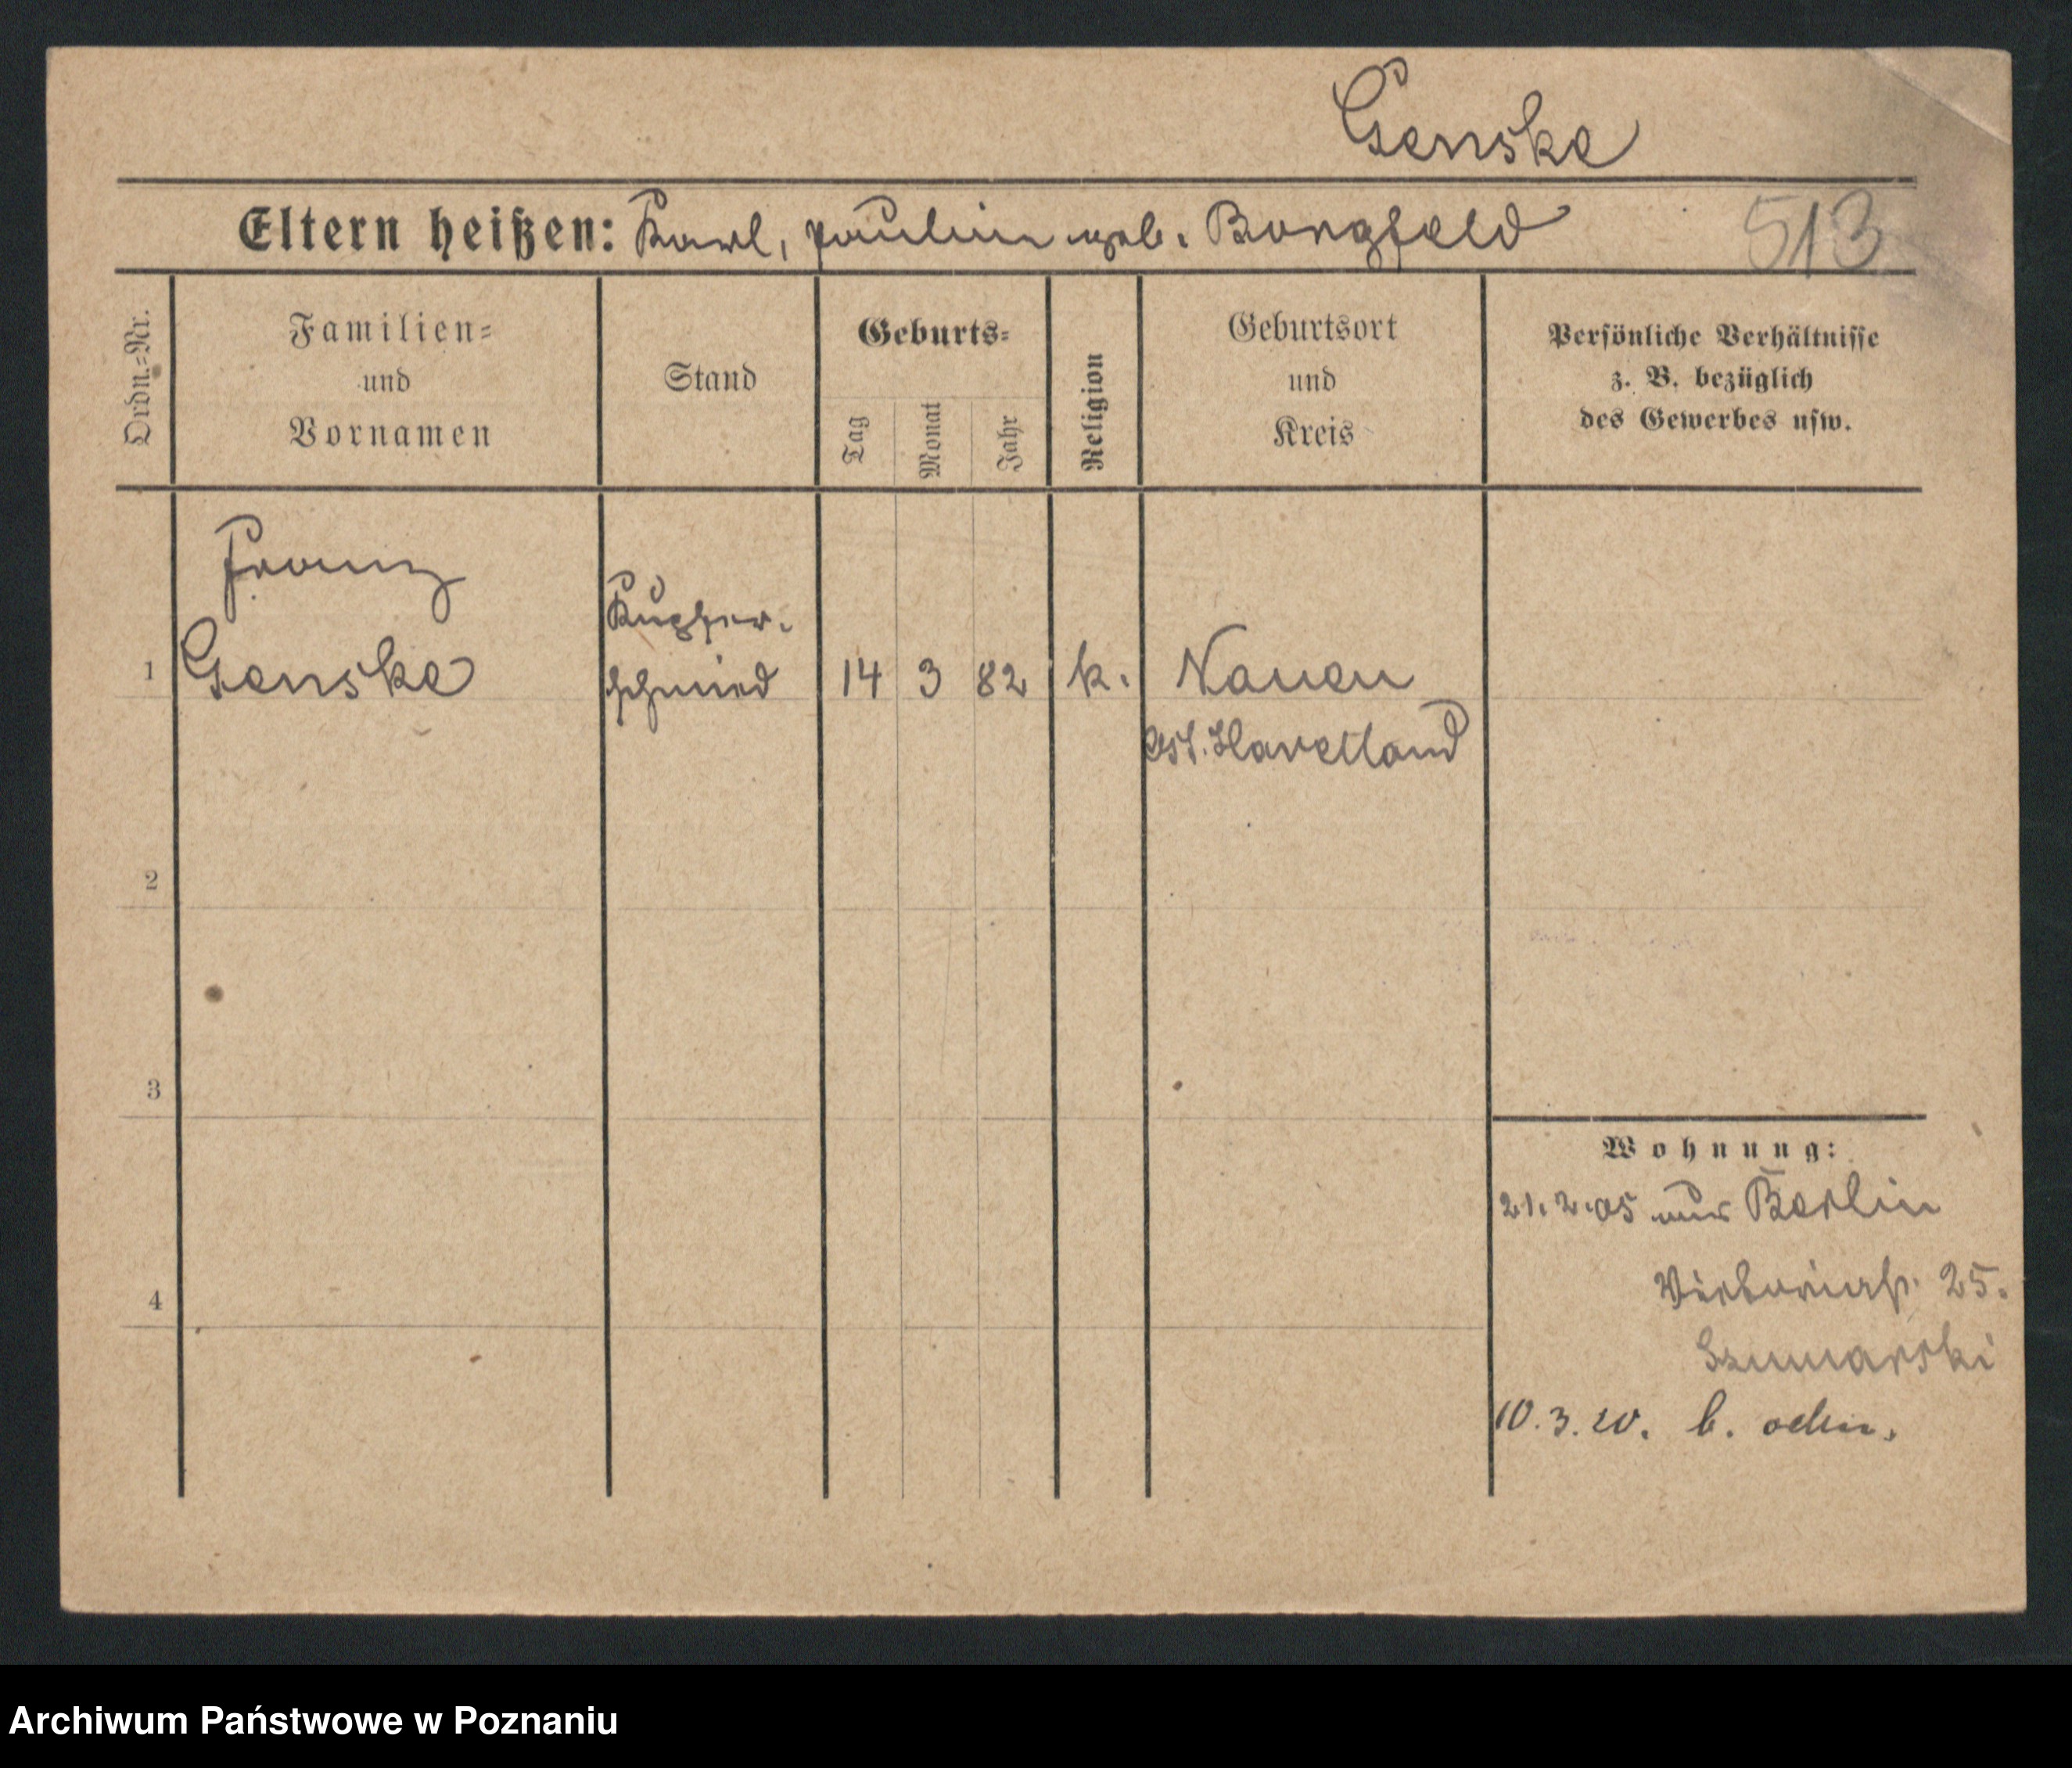 Genske
Eltern heißen: Karl, Pauline geb. Borgfeld
513
Ordn.=Nr.
Familien=
und
Vornamen
Stand
Geburts=
Tag
Monat
Jahr
Religion
Geburtsort
und
Kreis
Persönliche Verhältnisse
z. B. bezüglich
des Gewerbes usw.
Franz
1 Genske
Kupfer-
schmied
14 3 82 k.
Nauen
Ost. Havelland
2
3
4
Wohnung:
21. 2. 05 aus Berlin
Victoriastr. 25.
10. 3. 20. b.
Archiwum Państwowe w Poznaniu